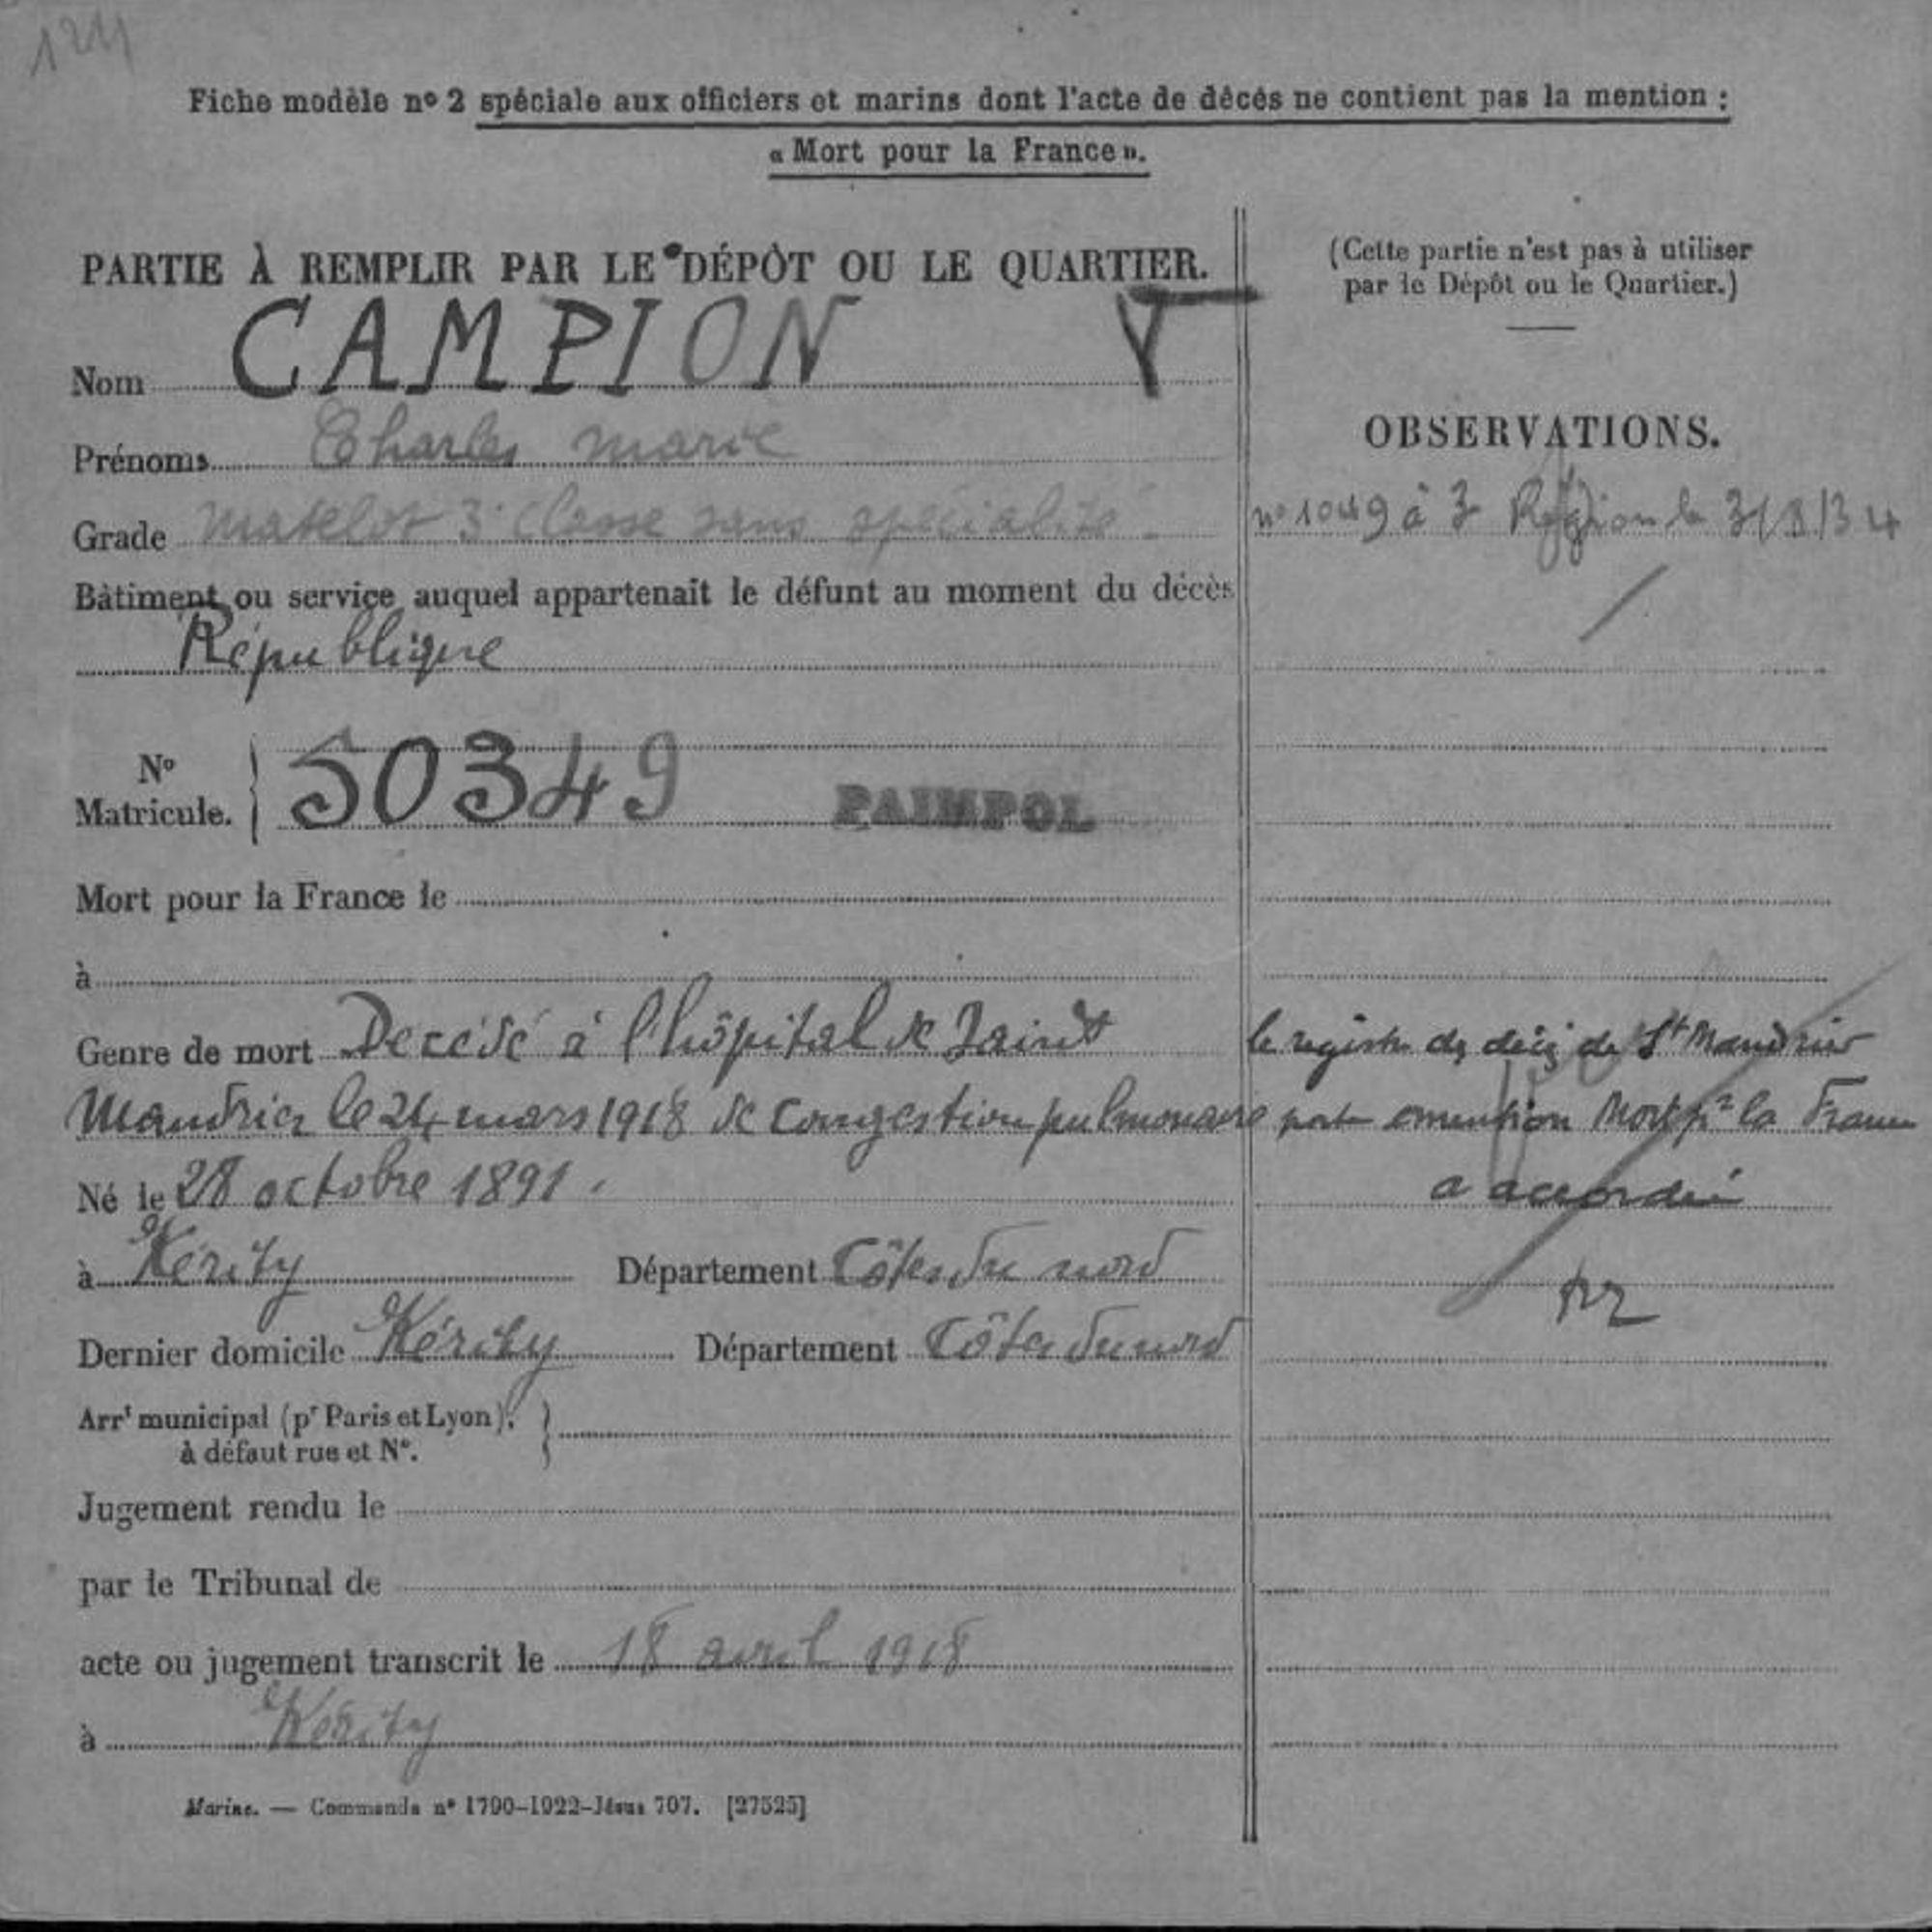 1211
Fiche modèle nº 2 spéciale aux officiers et marins dont l'acte de décès ne contient pas la mention :
« Mort pour la France ».
PARTIE À REMPLIR PAR LE DÉPÔT OU LE QUARTIER.
Nom CAMPION
Prénoms Charles Marie
Grade Matelot 3e classe sans spécialité
Bâtiment ou service auquel appartenait le défunt au moment du décès
République
Nº Matricule. } 50349 PAIMPOL
Mort pour la France le
à
Genre de mort Decédé à l'hôpital de Saint
Mandrier le 24 mars 1918 de Congestion pulmonaire
Né le 28 octobre 1891.
à Kérity Département Côtes du nord
Dernier domicile Kérity Département Côtes du nord
Arrt municipal (pr Paris et Lyon),
à défaut rue et Nº. }
Jugement rendu le
par le Tribunal de
acte ou jugement transcrit le 18 avril 1918
à Kérity
Marine. — Commande nº 1790-1922-Jésus 707. [27525]
(Cette partie n'est pas à utiliser
par le Dépôt ou le Quartier.)
OBSERVATIONS.
nº 1049 à 3 Région le 3/8/34
le registre des décès de St Mandrier
porte mention Mort pr la France
a accorder